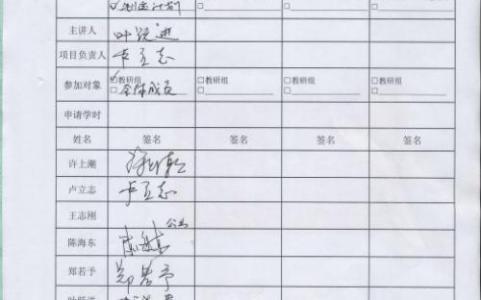 ☑制定计划
主讲人 叶跃进
项目负责人 卢立志
参加对象 ☑教研组 □教研组 □教研组 □教研组
□全体成员 □ □ □
申请学时
姓名 签名 签名 签名 签名
许上潮
卢立志 卢立志
王志刚 公出
陈海东 陈海东
郑若予 郑若予